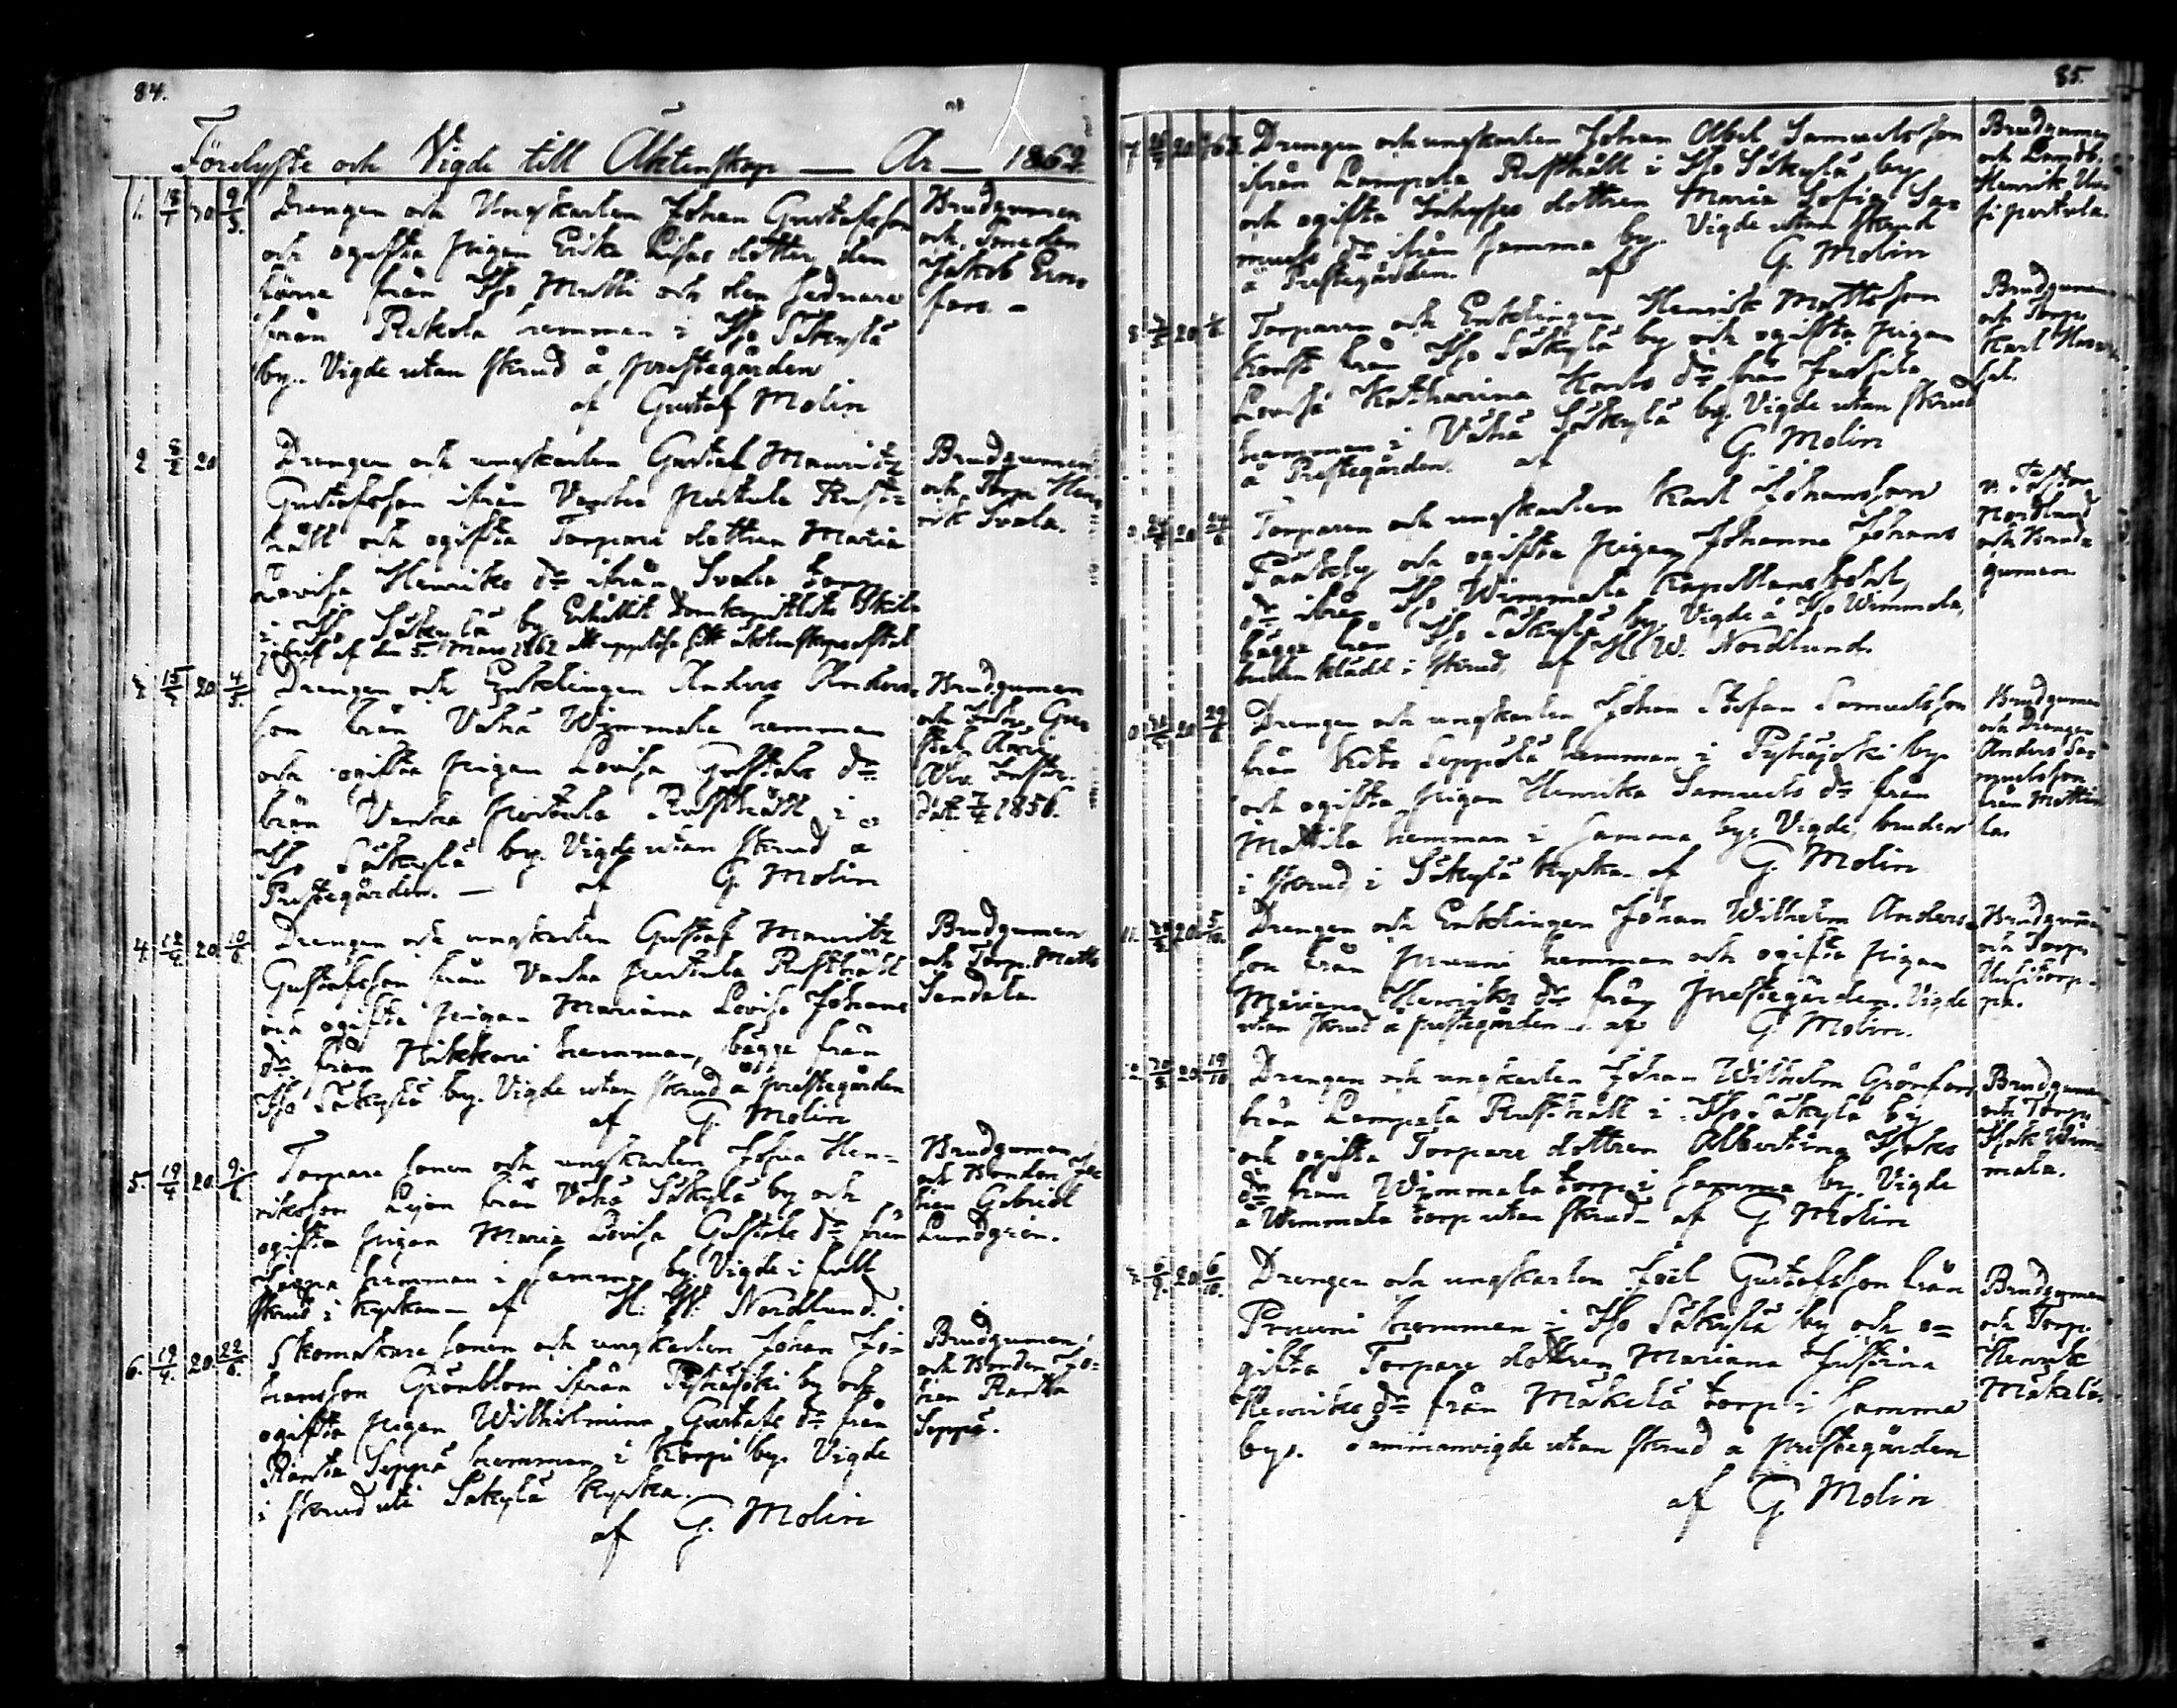 84.
Förelyste och Vigde till Äktenskap — År — 1862.
1. 18/1 20 9/3. Drengen och Ungkarlen Johan Gustafsson
och ogifta pigan Erika Lisas dotter, den
förre från Iso Mutti och den sednare
från Pekola hemman i Iso Säkylä
by. Vigde utan skrud å prestegården
af Gustaf Molin
Brudgumen
och Smeden
Jakob Eno
fors. —
2 20 Drengen och ungkarlen Gustaf Mauritz
Gustafsson ifrån Vanha Pertula Rust-
håll och ogifta Torpare dottren Maria
Lovisa Henriks dr ifrån Svala torp
i Iso Säkylä by. Erhållit Domkapitlets Skilje
bref af den 5. Mars 1862 att upplösa sitt äktenskapsaftal
Brudgumen
och Torp. Hen
rik Svala.
15/2 20 4/5. Drengen och Enklingen Anders Anders-
son från Vähä Wimmala hemman
och ogifta pigan Lovisa Gustafs dr
från Vanha Pertula Rusthåll i
Iso Säkylä by. Vigde utan skrud å
Prestegården. — af G. Molin
Brudgumen
och
1856.
4 20 Drengen och ungkarlen Gustaf Mauritz
Gustafsson från Vanha Pertula Rusthåll
och ogifta pigan Mariana Lovisa Johans
dr från Nikkari hemman, bägge från
Iso Säkylä by. Vigde utan skrud å prestegården
af G. Molin
Brudgumen
och Torp. Matts
Sandala.
5. 19/4 20. 9/6 Torpare sonen och ungkarlen Josua Hen-
riksson Lejon från Vähä Säkylä by och
ogifta pigan Maria Lovisa Gustafs dr från
hemman i samma by. Vigde i full
skrud i kyrkan — af H. W. Nordlund.
Brudgumen
och Bonden Jo
han Gabriel
Lundgrén.
6. 19/4. 20. 22/6. Skomakare sonen och ungkarlen Johan Jo-
hansson Grönblom ifrån Pyhäjoki by och
ogifta pigan Wilhelmina Gustafs dr från
Ranta Seppä hemman i Korpi by. Vigde
i skrud uti Säkylä kyrka.
af G. Molin
Brudgumen
och Bonden Jo-
han Ranta
Seppä.
85.
7 20 Drengen och ungkarlen Johan Abel Samuelsson
ifrån Lampola Rusthåll i Iso Säkylä by
och ogifta Inhyses dottren Maria Sofia Sa-
muels dr ifrån samma by. Vigde utan skrud
å Prestegården. af G. Molin
Brudgumen
och Landb.
Henrik Uu
si pertula.
8 20 Torparen och Enklingen Henrik Mattsson
från Iso Säkylä by och ogifta pigan
Lovisa Katharina Karls dr från Jussila
hemman i Vähä Säkylä by. Vigde utan skrud
å Prestegården. af G. Molin
Brudgumen
och Torp.
Karl
20 Torparen och ungkarlen Karl Johansson
och ogifta pigan Johanna Johans
dr ifrån Iso Wimmala Kapellansbohl,
bägge från Iso Säkylä by. Vigde å Iso Wimmala,
bruden klädd i skrud, af H. W. Nordlund.
v. Pastor
Nordlund
och Brud
gumen
20 29/6 Drengen och ungkarlen Johan Stefan Samuelsson
från Seppälä hemman i Pyhäjoki by
och ogifta pigan Henrika Samuels dr från
Mattila hemman i samma by. Vigde, bruden
i skrud i Säkylä kyrka. af G. Molin
Brudgumen
och Drengen
Anders Sa-
muelsson
från Matti
la.
11. 20 5/10. Drengen och Enklingen Johan Wilhelm Anders-
son från Pruuni hemman och ogifta pigan
Mariana Henriks dr från Prestegården. Vigde
utan skrud å prestegården — af G. Molin.
Brudgumen
och Torp.
Uusitorp-
pa.
20 19/10 Drengen och ungkarlen Johan Wilhelm Grönfors
från Lampola Rusthåll i Iso Säkylä by
och ogifta Torpare dottren Albertina Isaks
dr från Wimmala torp i samma by. Vigde
å Wimmala torp utan skrud — af G Molin
Brudgumen
och Torp.
Isak Wim-
mala.
20 6/10. Drengen och ungkarlen Joël Gustafsson från
Pruuni hemman i Iso Säkylä by och o-
gifta Torpare dottren Mariana Justina
Henriks dr från Mäkelä torp i samma
by. Sammanvigde utan skrud å prestegården
af G Molin
Brudgumen
och Torp.
Henrik
Mäkelä.